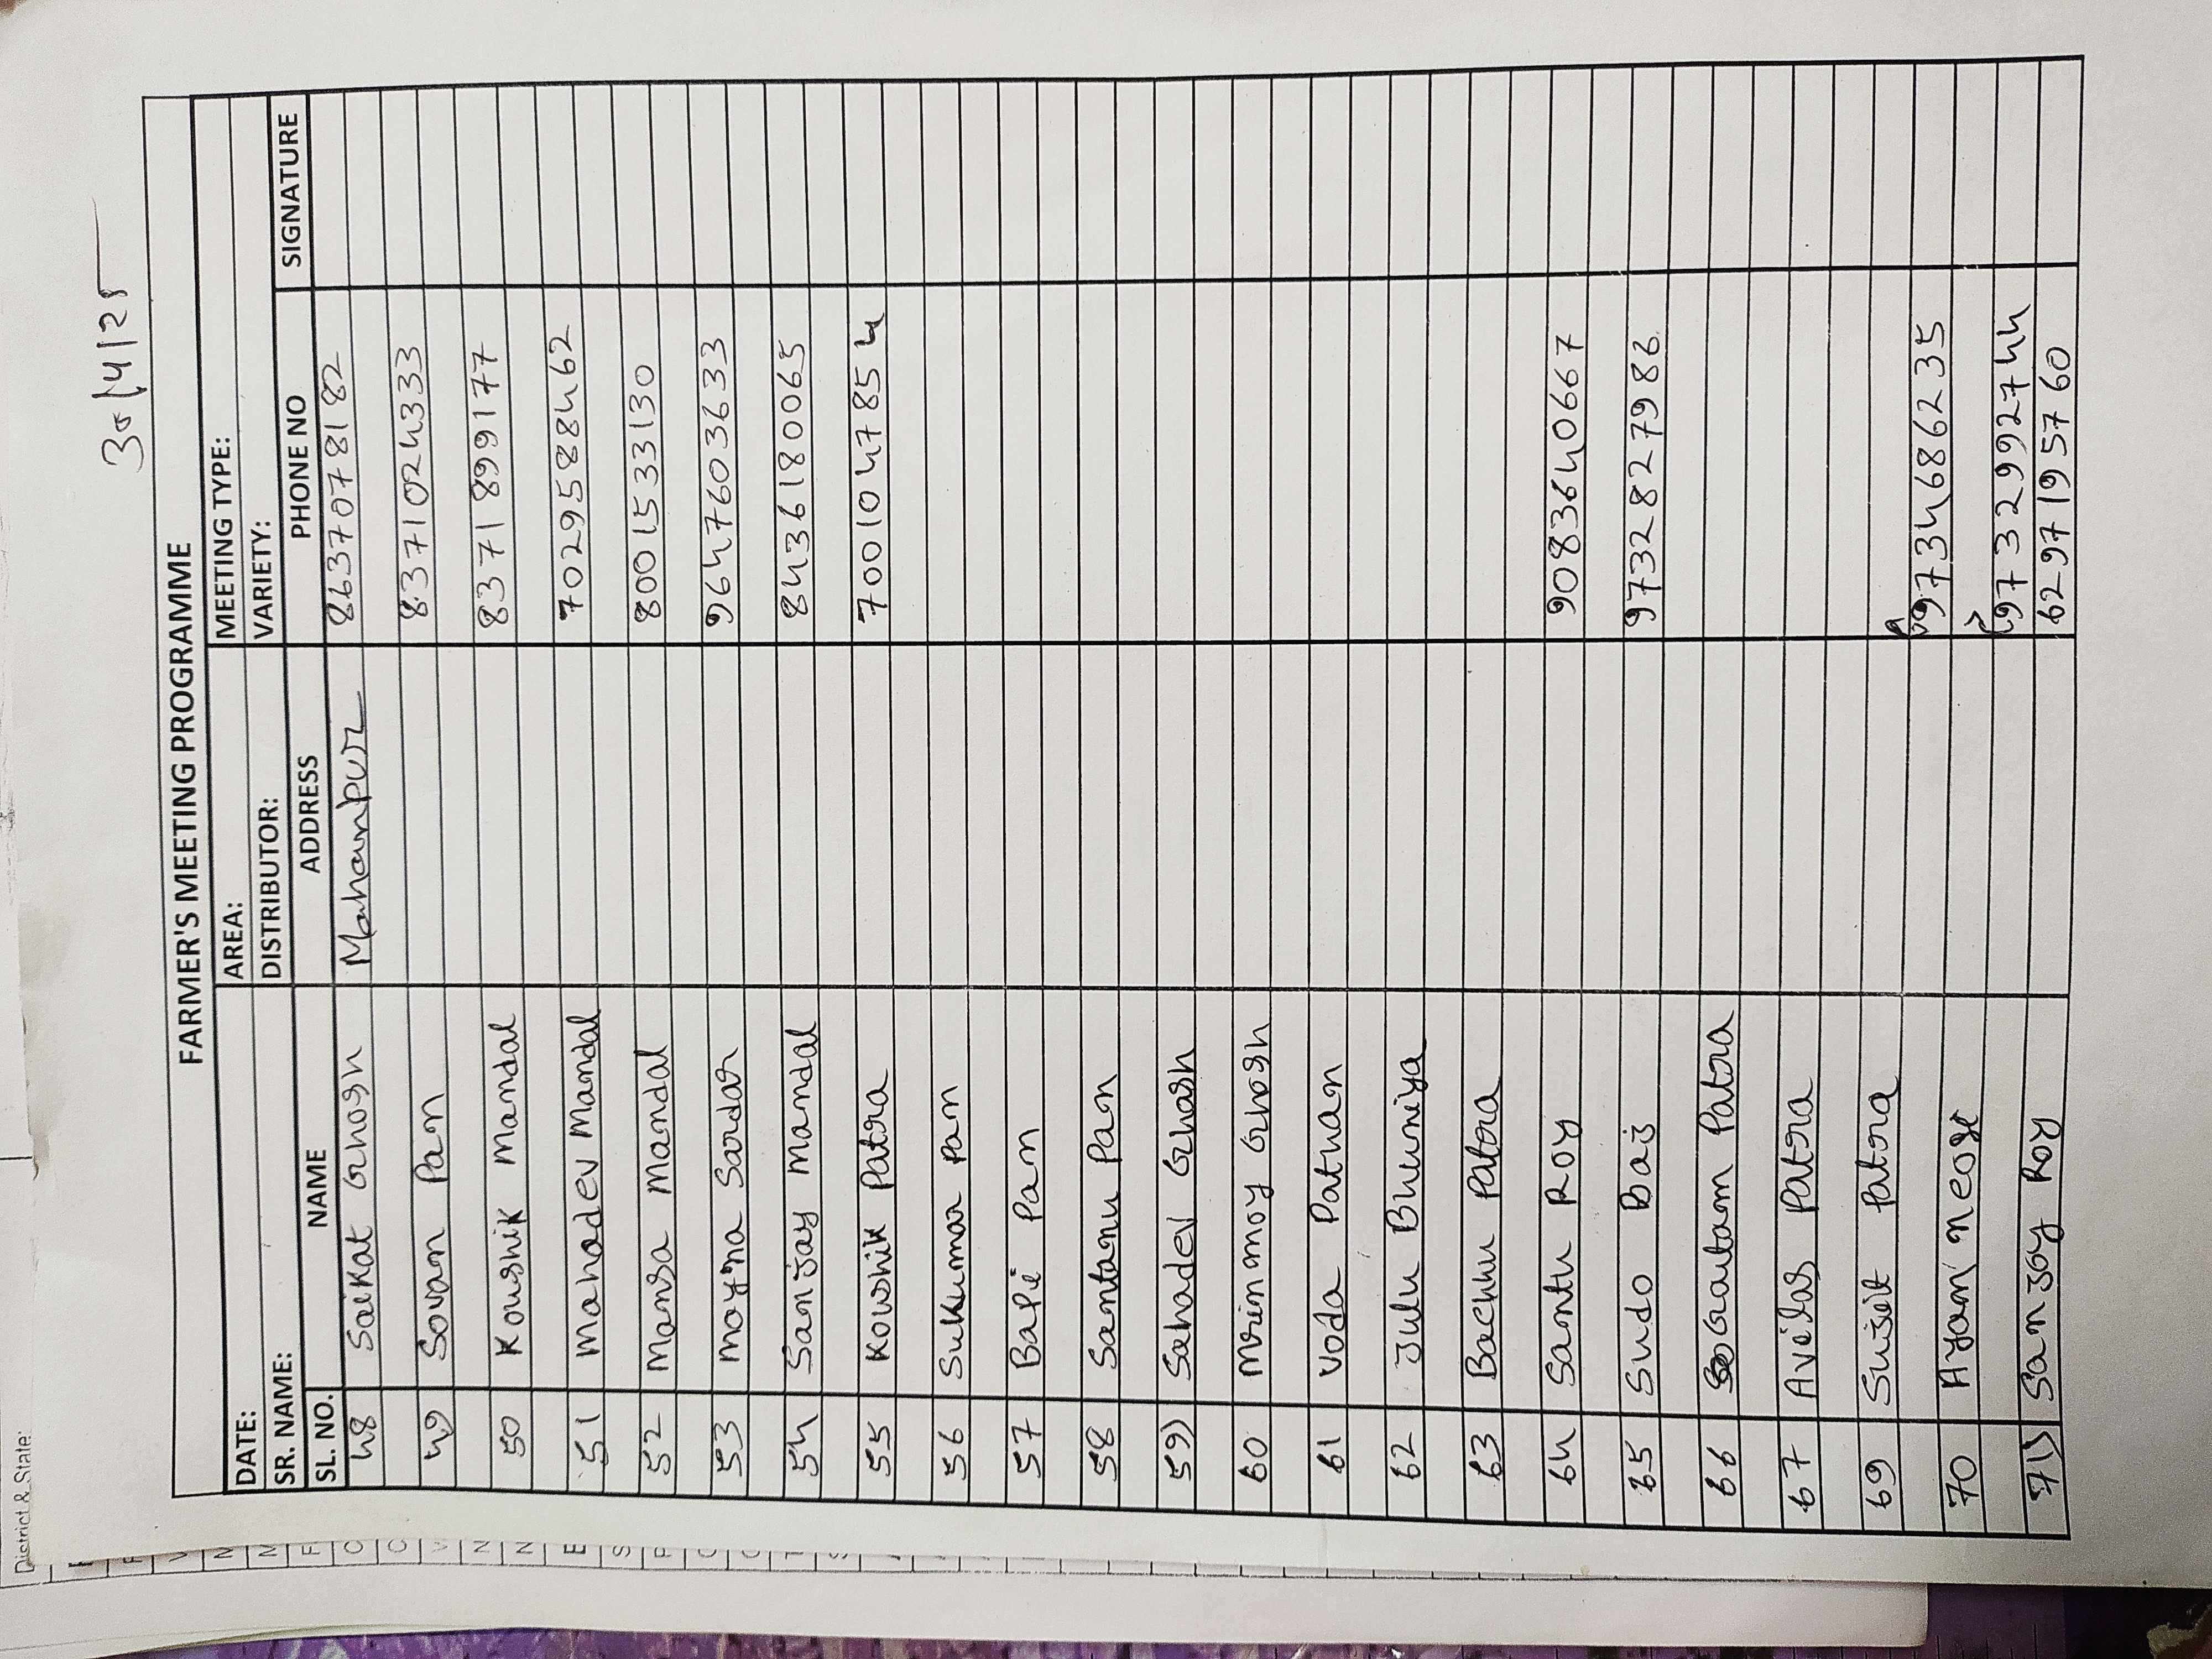 District & State:
30/4/25
FARMER'S MEETING PROGRAMME
DATE: AREA: MEETING TYPE:
SR. NAME: DISTRIBUTOR: VARIETY:
SL. NO. NAME ADDRESS PHONE NO SIGNATURE
48 Saikat Ghosh Mohanpur 8637078182
49 Sovan Pan 8371024333
50 Koushik Mandal 8371899177
51 Mahadev Mandal 7029588462
52 Mansa Mandal 8001533130
53 Moyna Sardar 9647603633
54 Sanjay Mandal 8436180065
55 Kowshik Patra 7001047854
56 Sukumar Pan
57 Bapi Pan
58 Santanu Pan
59) Sahadev Ghosh
60 Mrinmoy Ghosh
61 Voda Pathan
62 Julu Bhuniya
63 Bachhu Patra
64 Santu Roy 9083640667
65 Sudo Baj 9732827986
66 Goutam Patra
67 Avijas Patra
69 Sujit Patra
70 Ayan neoge 9734686235
9732992744
71) Sanjoy Roy 6297195760